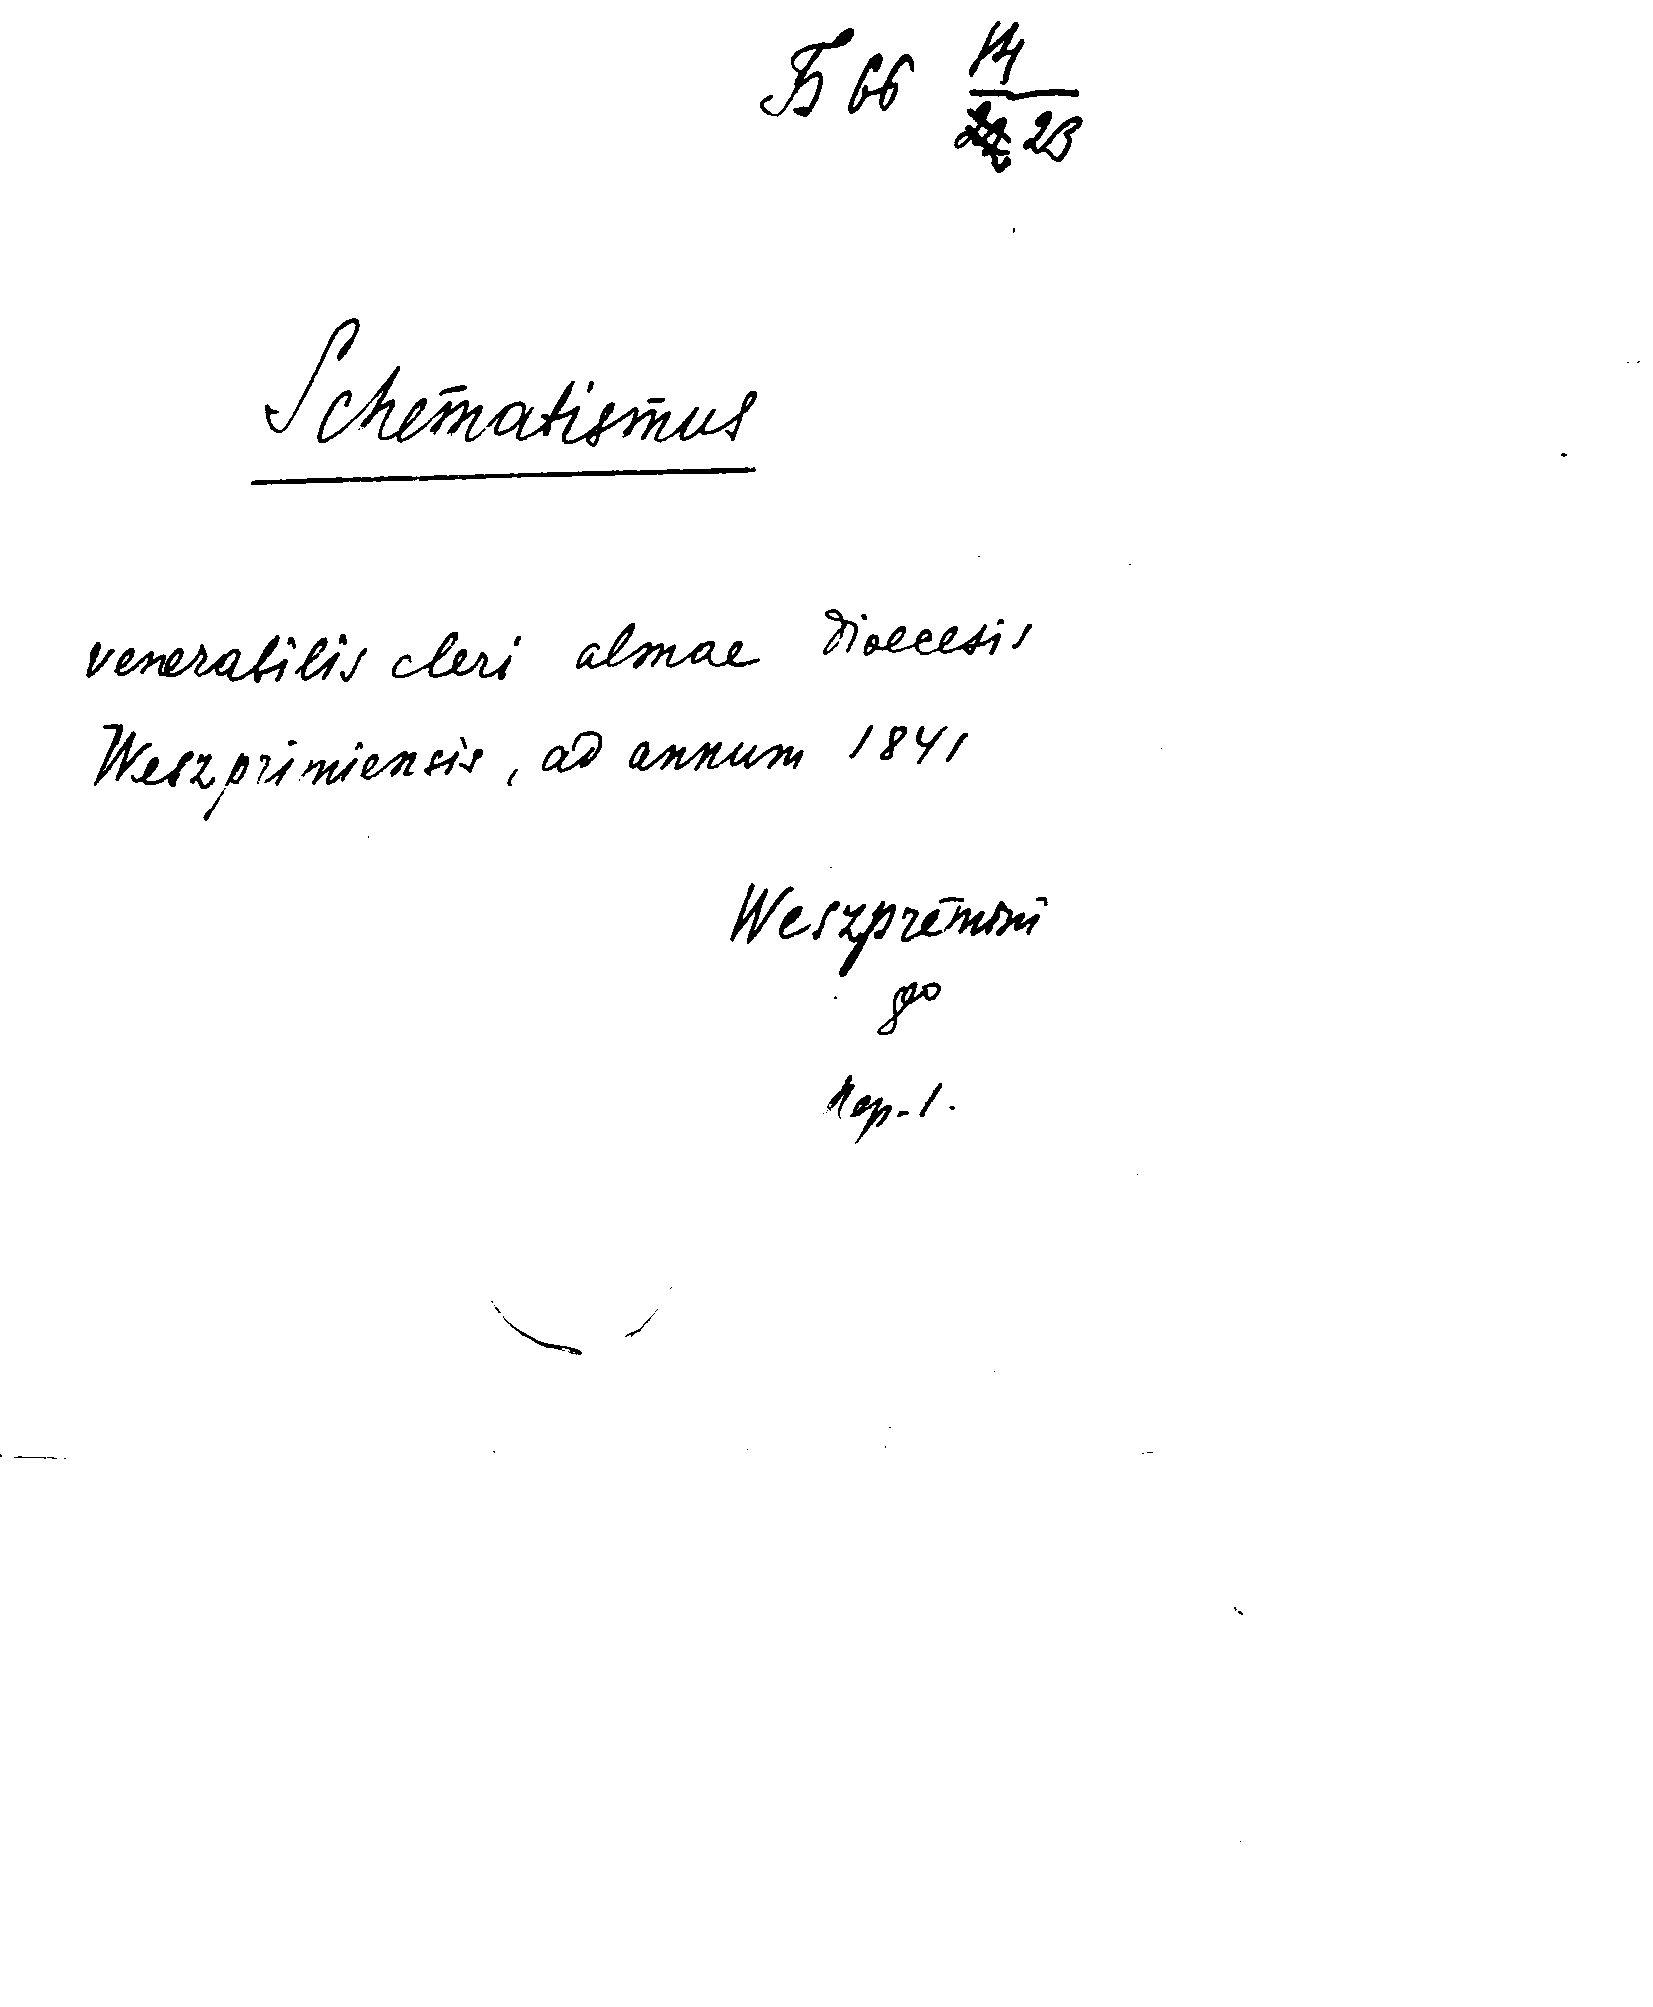 Б 66 14/23
Schematismus
venerabilis cleri almae Dioecesis
Weszprimiensis, ad annum 1841
Weszprémini
8°
Кор-1.